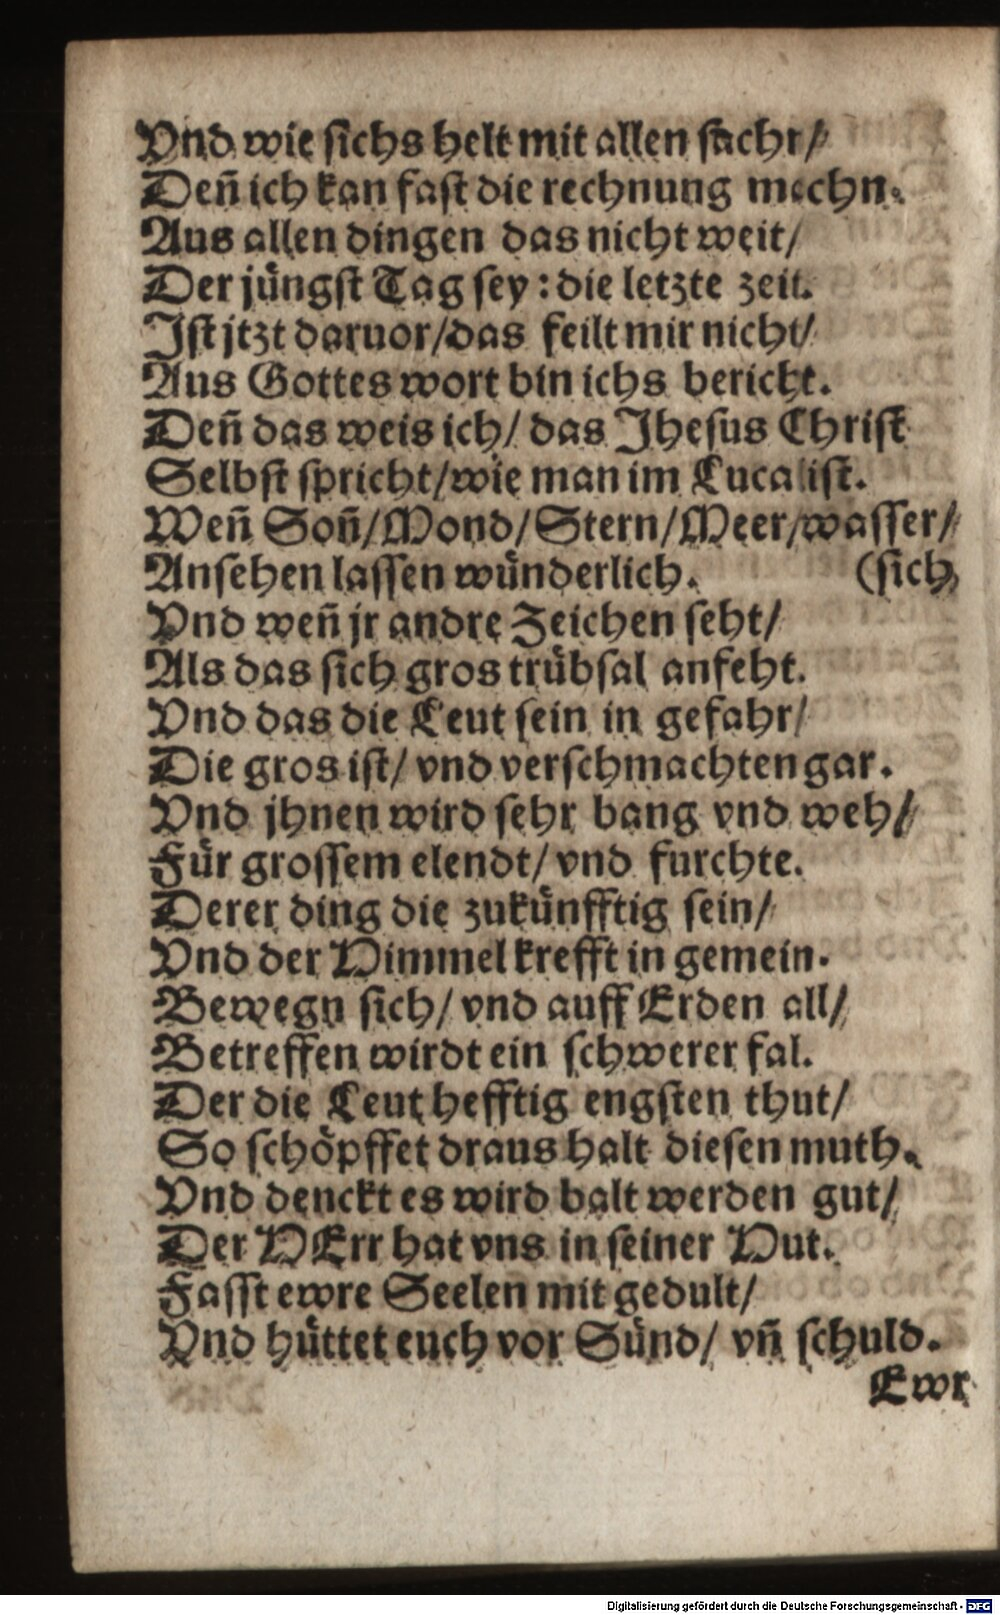 Vnd wie sichs helt mit allen sachn/
Deñ ich kan fast die rechnung machn.
Aus allen dingen das nicht weit/
Der jüngst Tag sey: die letzte zeit.
Ist jtzt daruor/das feilt mir nicht/
Aus Gottes wort bin ichs bericht.
Deñ das weis ich/ das Jhesus Christ
Selbst spricht/wie man im Luca list.
Weñ Soñ/Mond/Stern/Meer/wasser/
Ansehen lassen wünderlich. (sich
Vnd weñ jr andre Zeichen seht/
Als das sich gros trübsal anfeht.
Vnd das die Leut sein in gefahr/
Die gros ist/ vnd verschmachten gar.
Vnd jhnen wird sehr bang vnd weh/
Für grossem elendt/ vnd furchte.
Derer ding die zukünfftig sein/
Vnd der Himmel krefft in gemein.
Bewegn sich/ vnd auff Erden all/
Betreffen wirdt ein schwerer fal.
Der die Leut hefftig engsten thut/
So schöpffet draus halt diesen muth.
Vnd denckt es wird balt werden gut/
Der HErr hat vns in seiner Hut.
Fasst ewre Seelen mit gedult/
Vnd hüttet euch vor Sünd/ vñ schuld.
Ewr
Digitalisierung gefördert durch die Deutsche Forschungsgemeinschaft - DFG